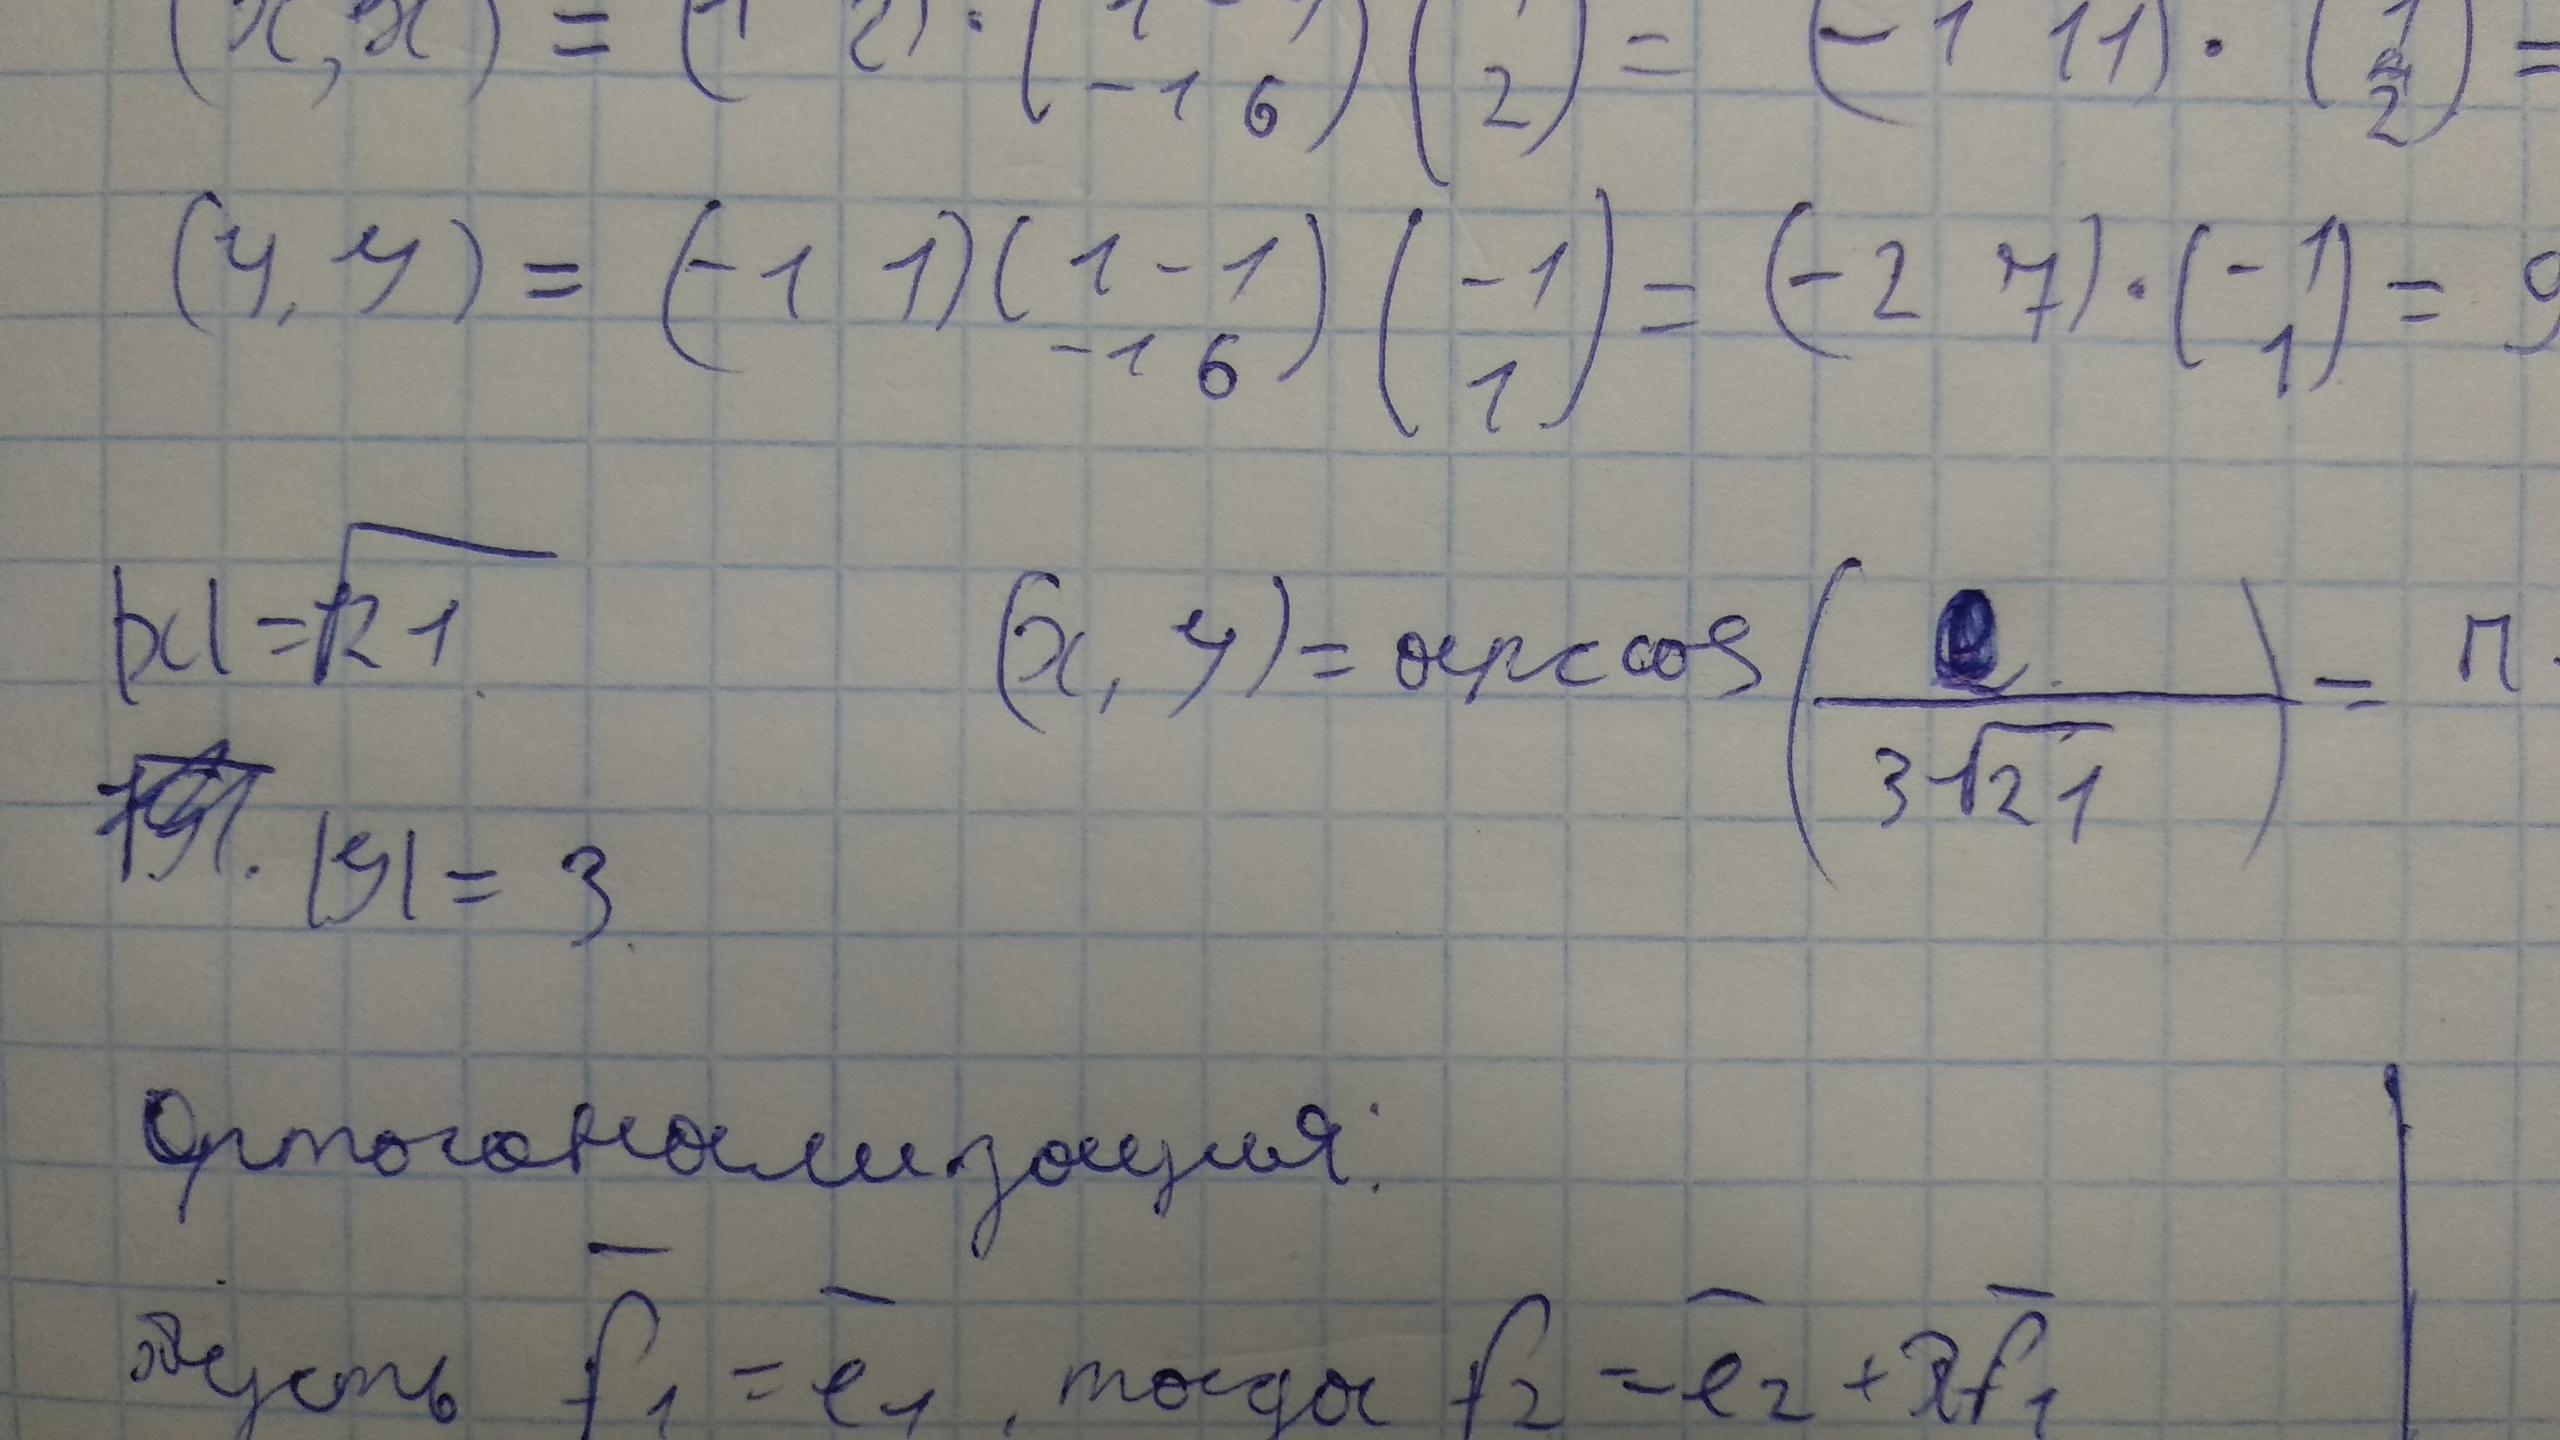 (x, x) = (1 2) · (1 -1 -1 6) (1 2) = (-1 11) · (1 2) =
(y, y) = (-1 1) (1 -1 -1 6) (-1 1) = (-2 7) · (-1 1) = 9
|x| = √21. (x, y) = arccos ( / 3√21) = π
|y| = 3.
Ортогонализация:
Пусть f̅₁ = e̅₁, тогда f₂ = e̅₂ + λf̅₁